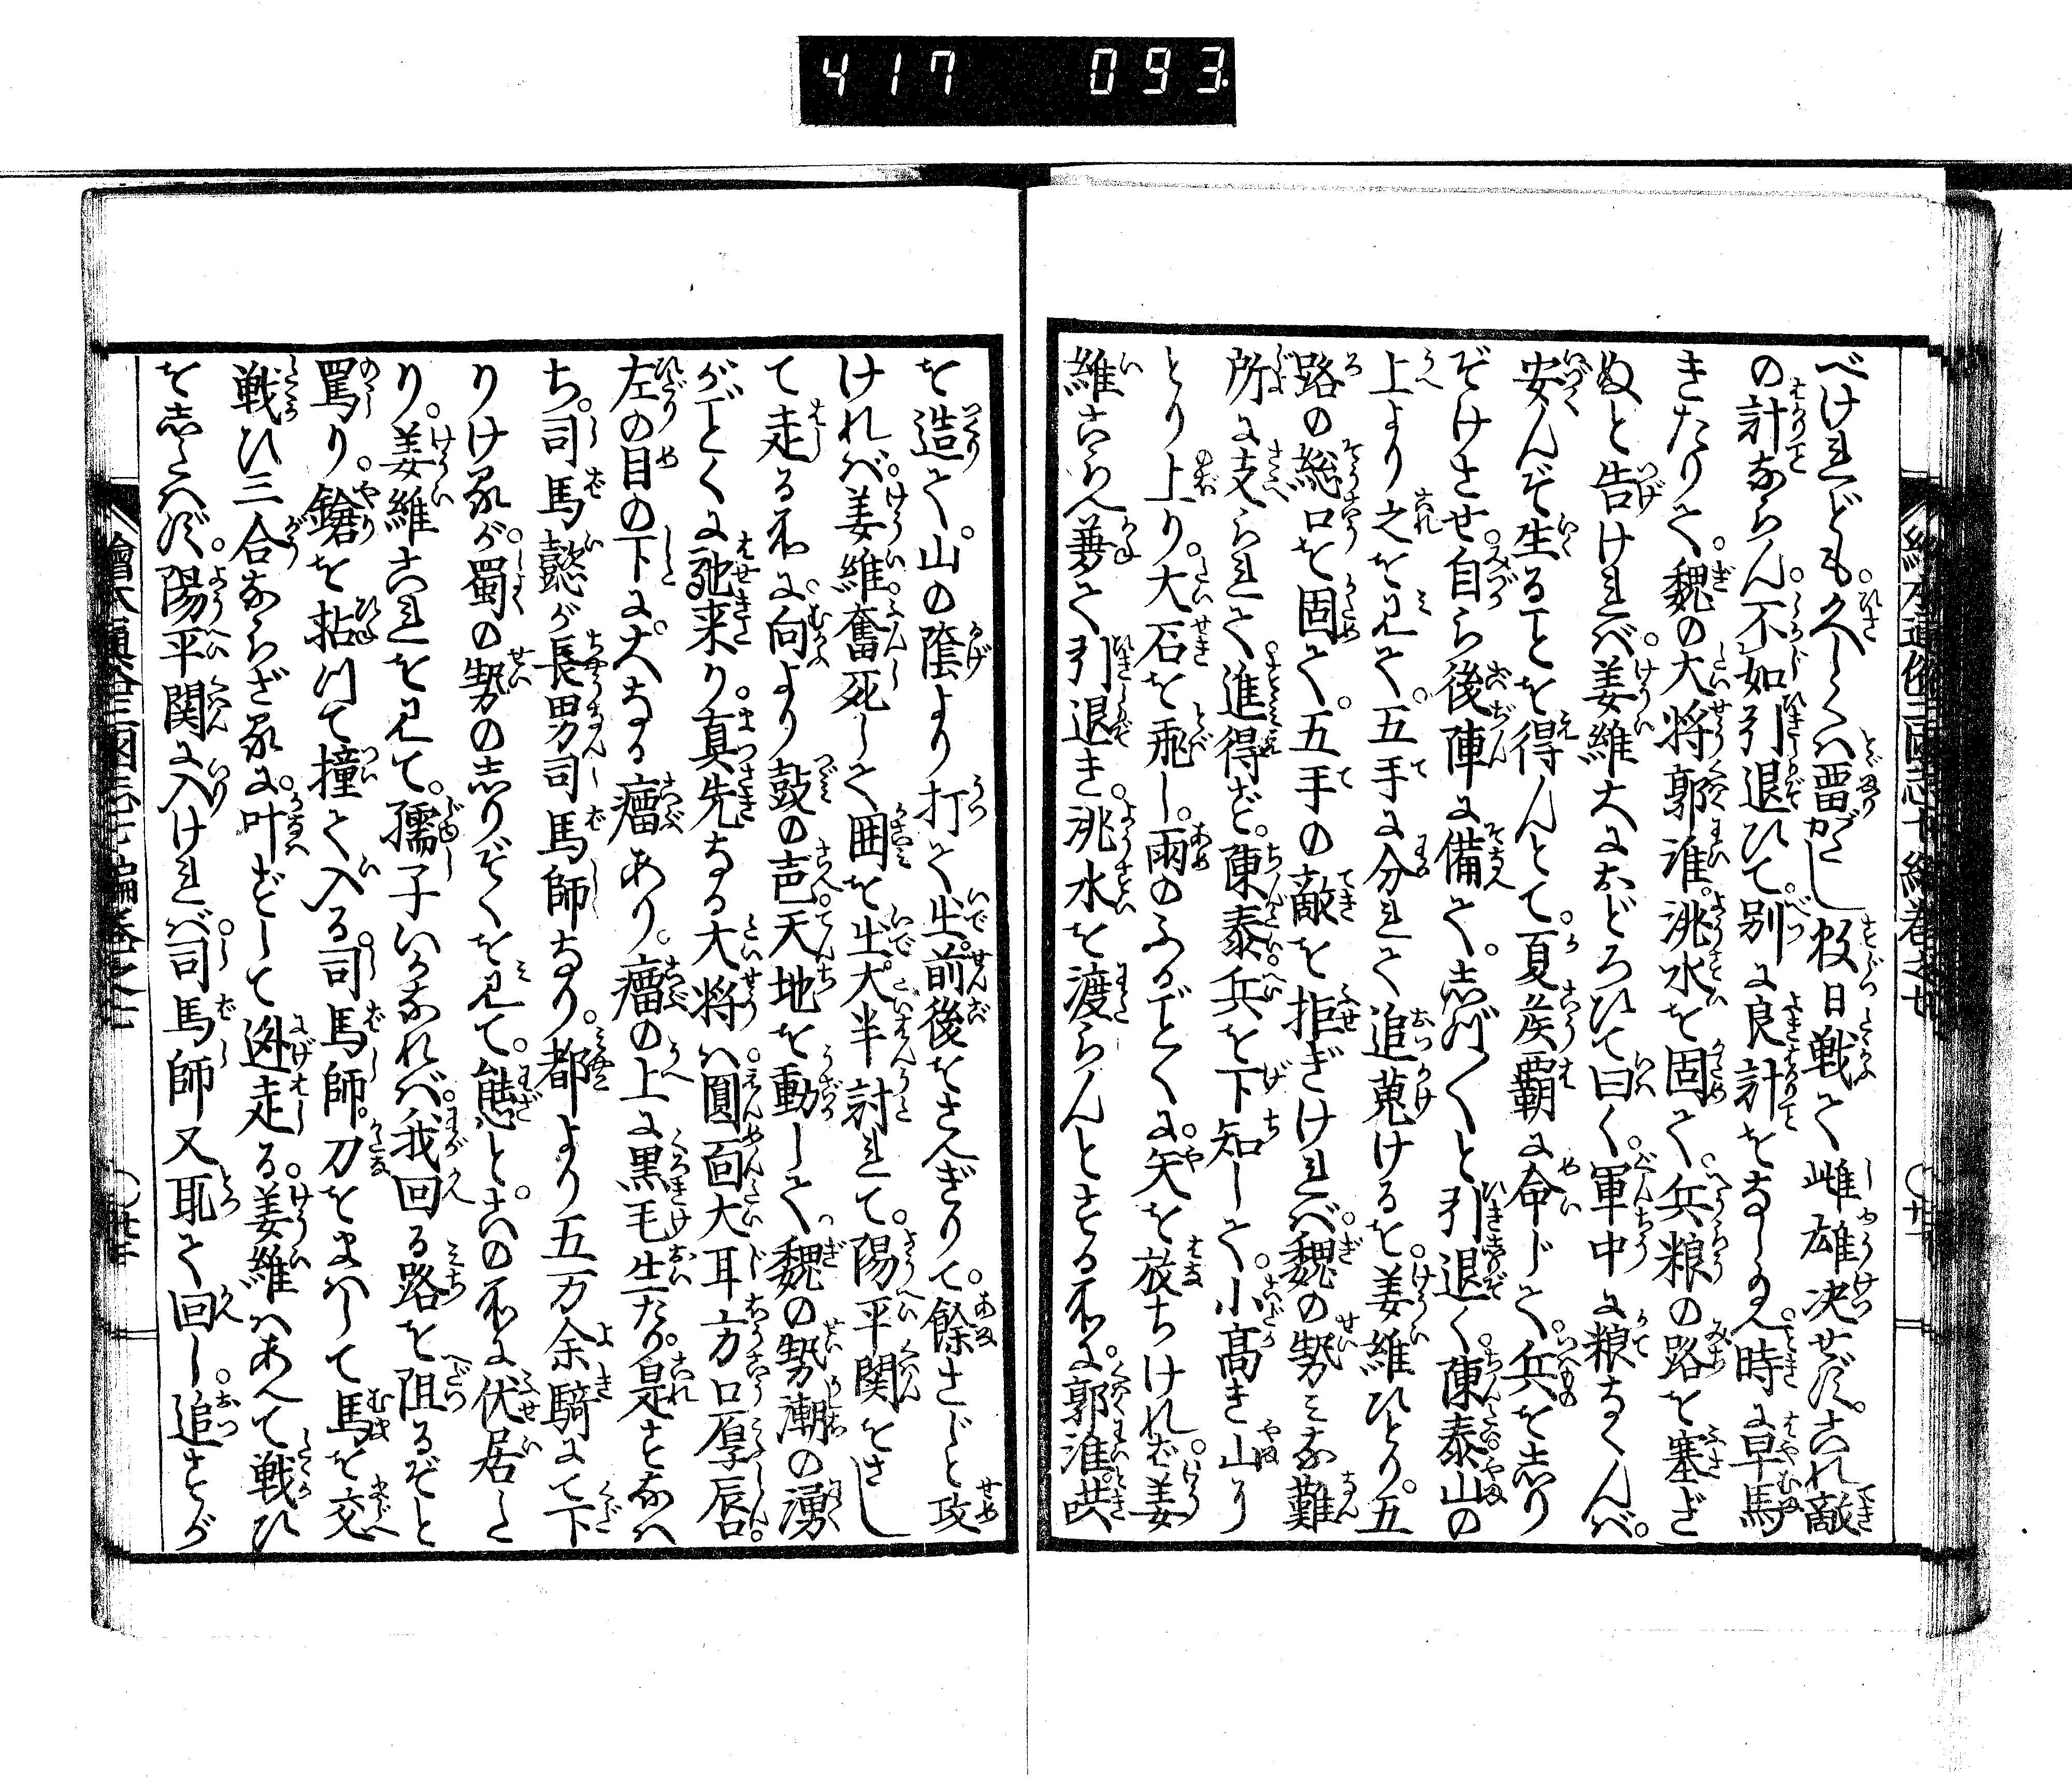 417 093
べけれども。久しくは畱がたし。数日戦て雌雄决せず。これ敵
の計ならん。不如引退ひて。別に良計をなしく。時に早馬
きたりて。魏の大将郭淮。洮水を固て。兵粮の路を塞ぎ
ぬと告ければ。姜維大におどろひて曰く。軍中に粮なくんば。
安んぞ生ることを得んとて。夏侯覇に命じて。兵をしり
ぞけさせ。自ら後陣に備て。志づ〱と引退く。陳泰山の
上より之を見て。五手に分れて追蒐けるを。姜維ひとり。五
路の総口を固て。五手の敵を拒ぎければ。魏の勢みな難
所に支られて進得ず。陳泰兵を下知して。小高き山に
とり上り。大石を飛し。雨のふるごとくに。矢を放ちければ。姜
維こらへ兼て引退き。洮水を渡らんとする所に。郭淮哄
を造て。山の蔭より打て出。前後をさえぎりて。餘さじと攻
ければ。姜維奮死して囲を出。大半討れて。陽平関をさし
て走る所に。向より鼓の声。天地を動して。魏の勢潮の湧
がごとくに馳来り。真先なる大将は。圓面大耳方口厚唇。
左の目の下に。大なる瘤あり。瘤の上に黒毛生たり。是すなは
ち。司馬懿が長男司馬師なり。都より五万余騎にて下
りけるが。蜀の勢のしりぞくを見て。態と。この所に伏居た
り。姜維これを見て。孺子いかなれば。我回る路を阻るぞと
罵り。鎗を拈つて撞て入る。司馬師。刀をまはして馬を交
戦ひ三合ならざるに。叶ずして迯走る。姜維はあへて戦ひ
を志たはず。陽平関に入ければ。司馬師又取て回し。追すが